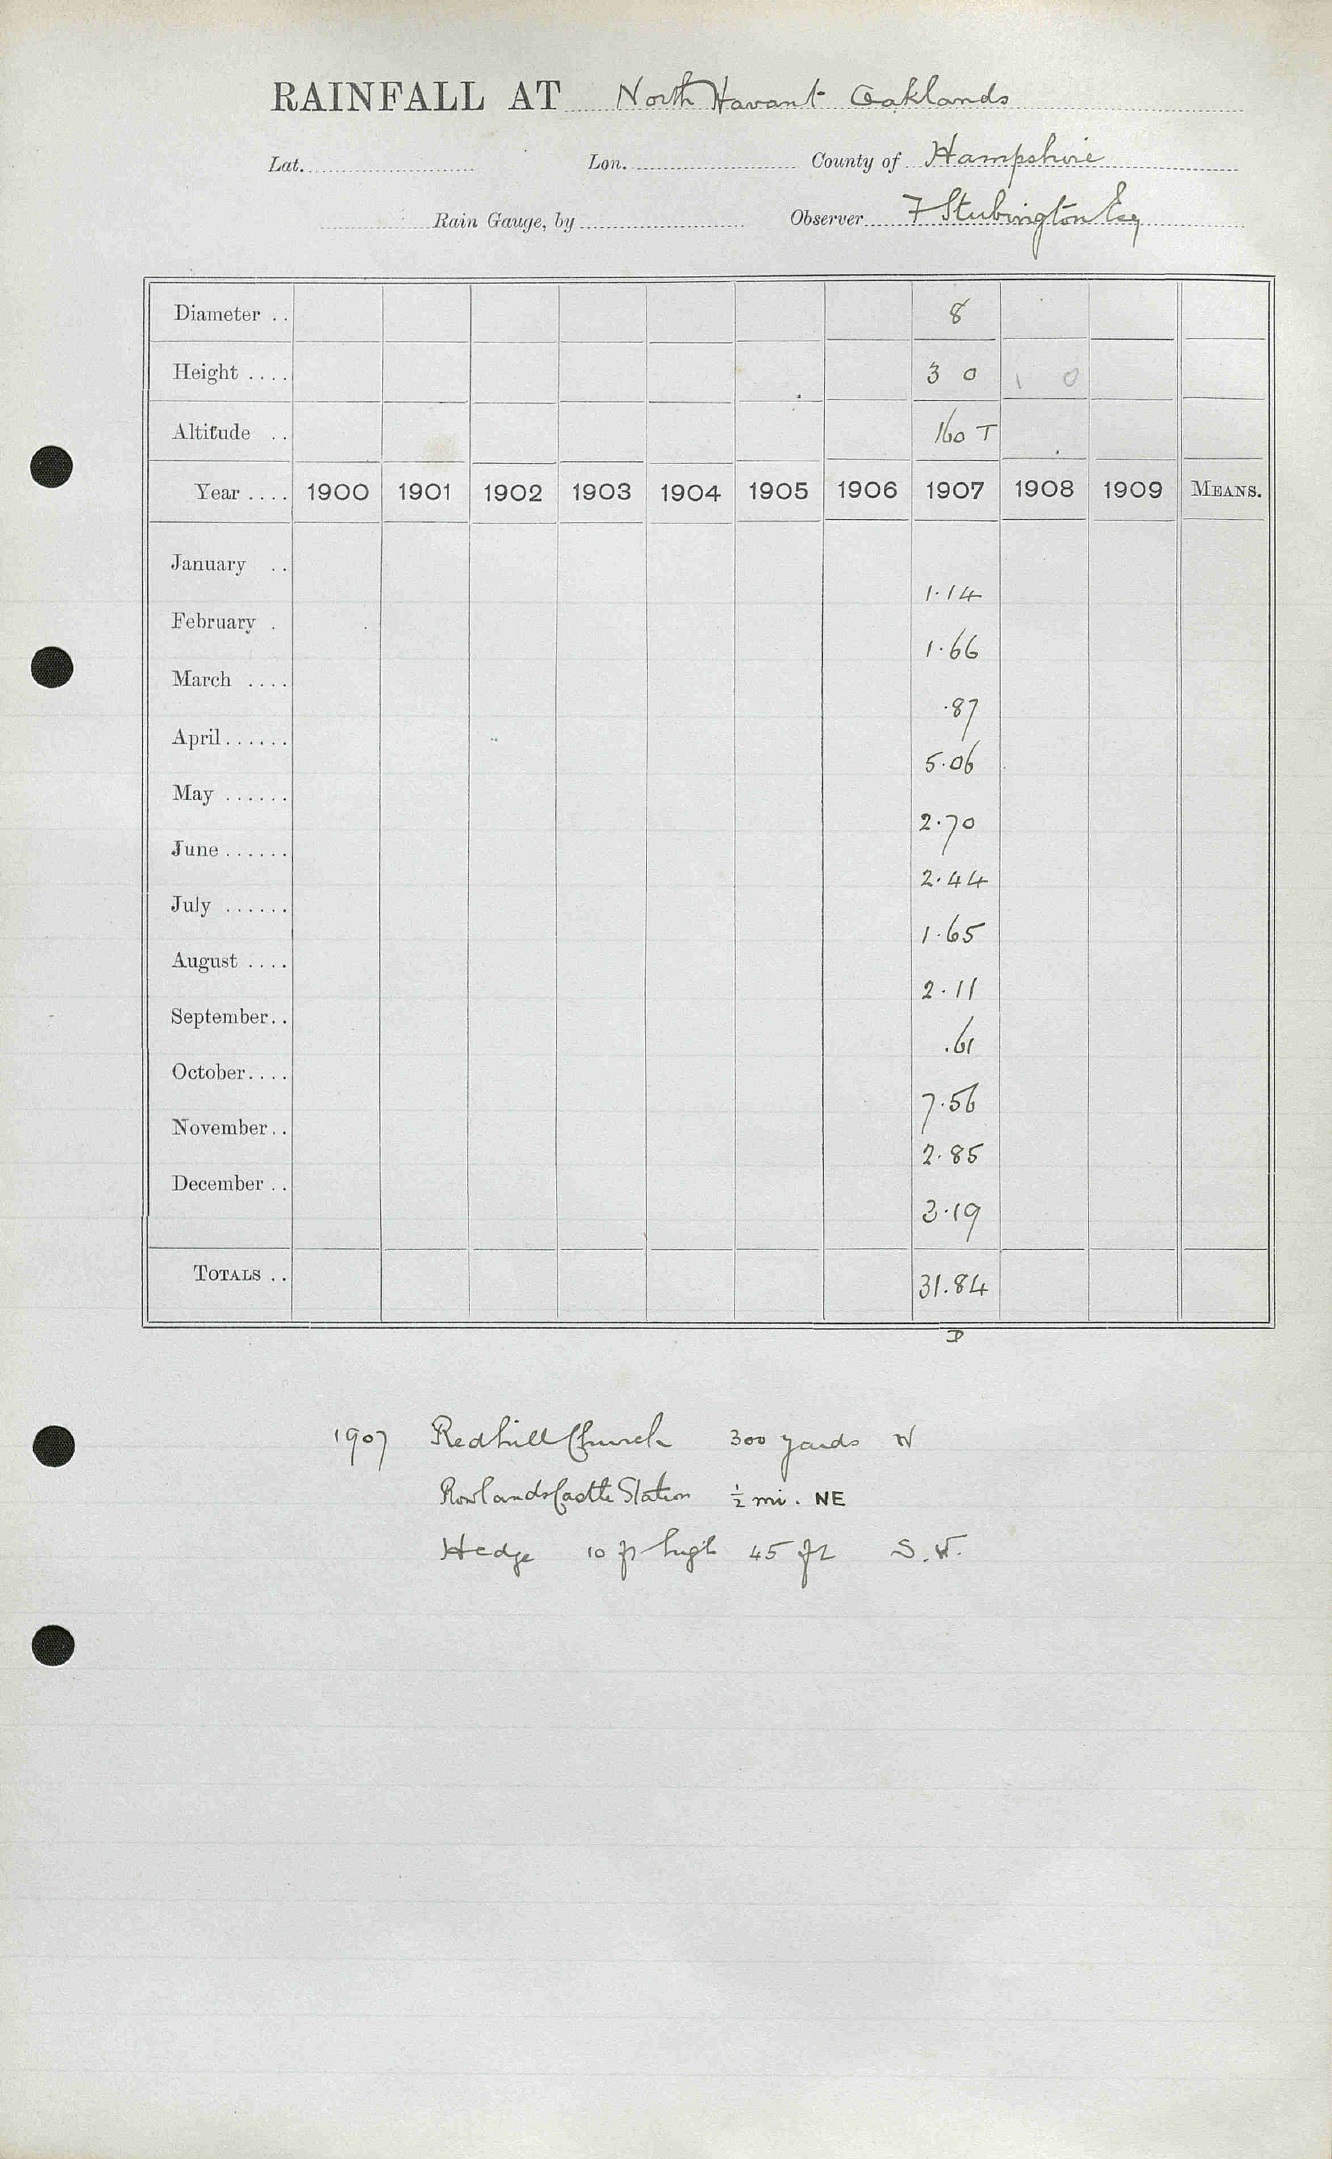 RAINFALL AT North Havant Oaklands
Lat. Lon. County of Hampshire
Rain Gauge, by Observer F Stubington Esq
Diameter .. 8
Height .... 3 0 1 0
Altitude .. 160 T
Year .... 1900 1901 1902 1903 1904 1905 1906 1907 1908 1909 MEANS.
January .. 1.14
February . 1.66
March .... .87
April...... 5.06
May ...... 2.70
June ...... 2.44
July ...... 1.65
August .... 2.11
September.. .61
October.... 7.56
November.. 2.85
December .. 3.19
TOTALS .. 31.84
D
1907 Redhill Church 300 yards W
Rowlands Castle Station ½ mi. NE
Hedge 10 ft high 45 ft S.W.